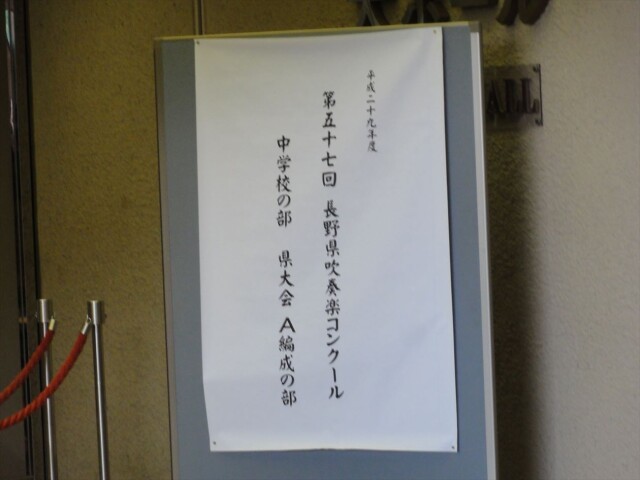 大ホール
ALL
平成二十九年度
第五十七回 長野県吹奏楽コンクール
中学校の部 県大会 A編成の部